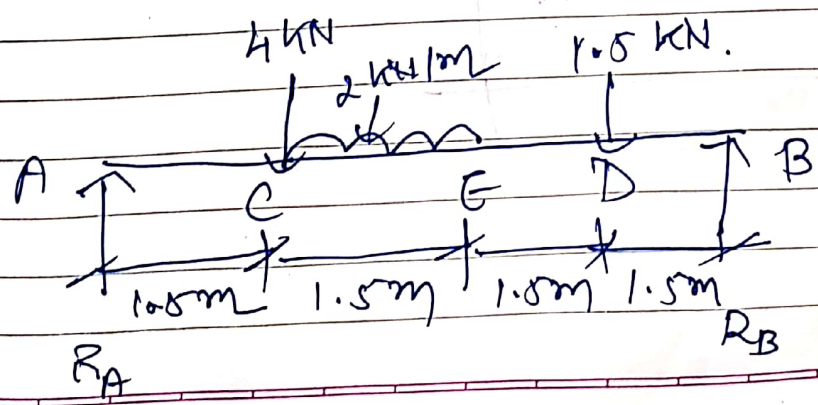 4 KN
2 KN/m
1.5 KN.
A
B
C
E
D
1.5m
1.5m
1.5m
1.5m
RA
RB